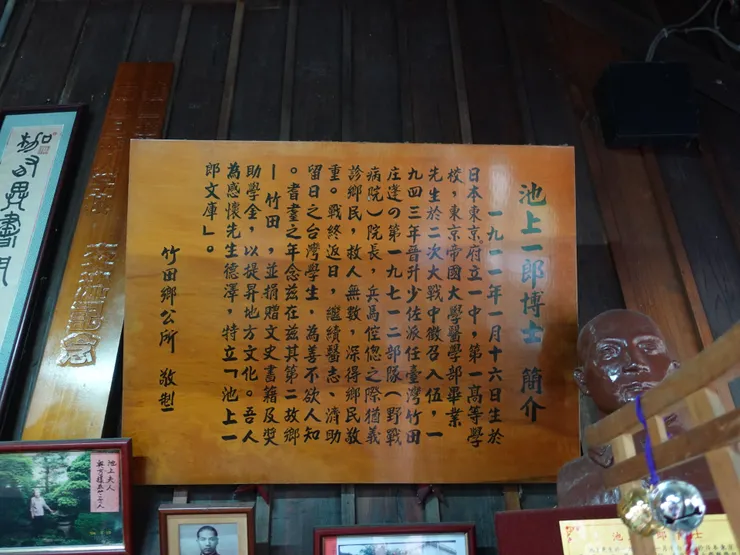 池上一郎博士 簡介
一九一一年一月十六日生於
日本東京府立一中，第一高等學
校，東京帝國大學醫學部畢業
先生於二次大戰中徵召入伍，一
九四三年晉升少佐派任臺灣竹田
庄逹の第一九七一二部隊（野戰
病院）院長，兵馬倥傯之際猶義
診鄉民，救人無數，深得鄉民敬
重。戰終返日，繼續醫志、濟助
留日之台灣學生，為善不欲人知
。耆耋之年念茲在茲其第二故鄉
｜竹田，並捐贈文史書籍及獎
助學金，以提昇地方文化。吾人
為感懷先生德澤，特立「池上一
郎文庫」。
竹田鄉公所 敬製
紀念
池上夫人